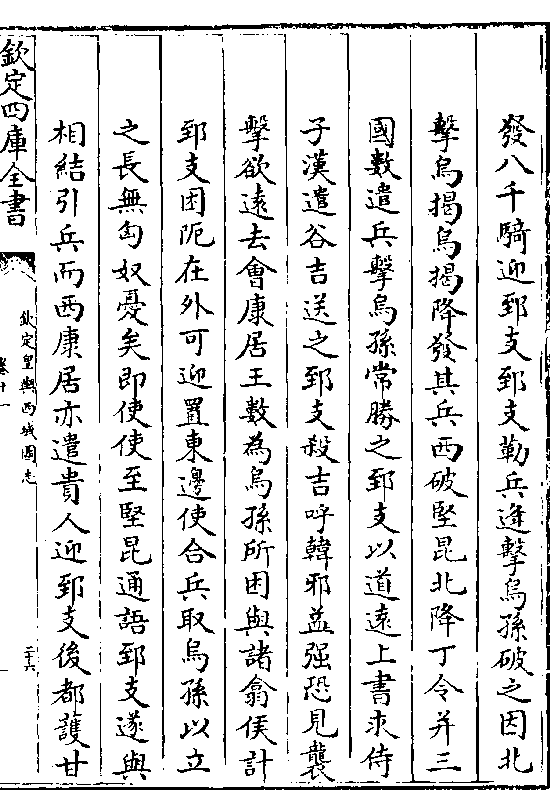 發八千騎迎郅支郅支勒兵逢擊烏孫破之因北
擊烏揭烏揭降發其兵西破堅昆北降丁令并三
國數遣兵擊烏孫常勝之郅支以道遠上書求侍
子漢遣谷吉送之郅支殺吉呼韓邪益强恐見襲
擊欲遠去會康居王數為烏孫所困與諸翕侯計
郅支困阨在外可迎置東邊使合兵取烏孫以立
之長無匈奴憂矣即使使至堅昆通語郅支遂與
相結引兵而西康居亦遣貴人迎郅支後都護甘
欽定四庫全書
欽定皇輿西域圖志
卷十一
二十六